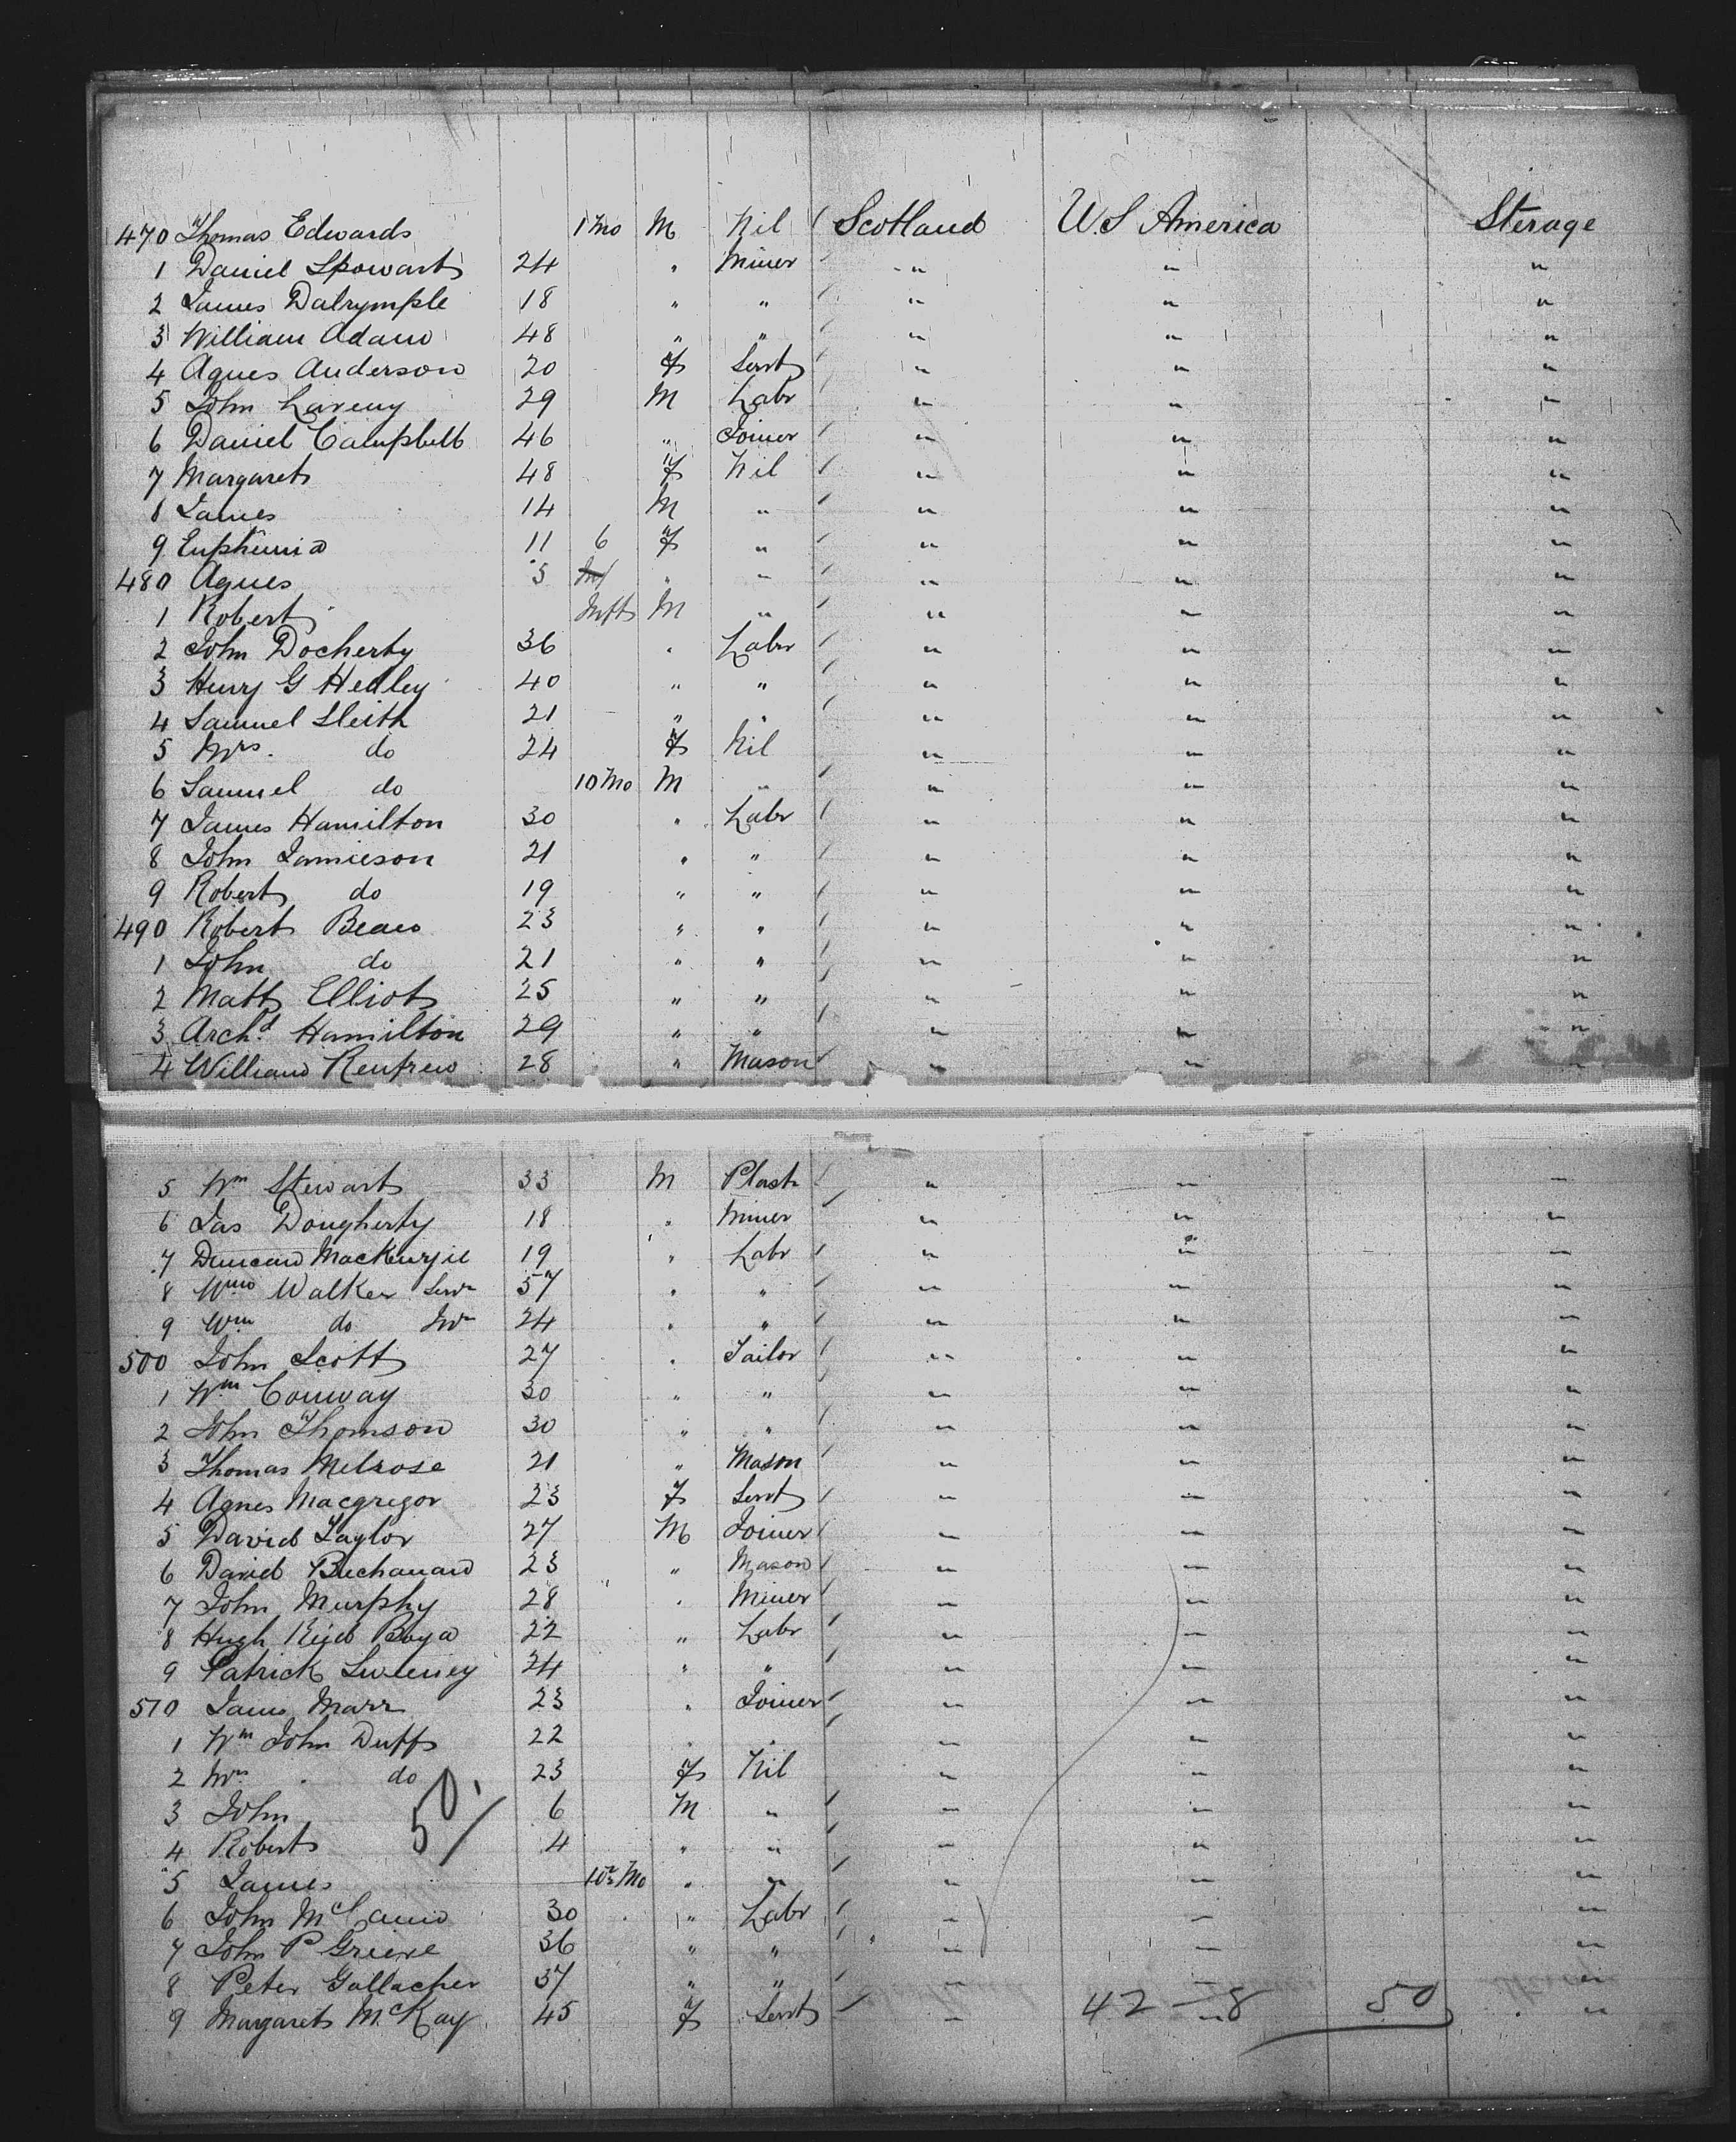 470 Thomas Edwards 1 Mo M Nil Scotland U.S America Sterage
1 Daniel Spowart 24 " Miner " " "
2 James Dalrymple 18 " " " " "
3 William Adam 48 " " " " "
4 Agnes Anderson 20 F Servt " " "
5 John 29 M Labr " " "
6 Daniel Campbell 46 " Joiner " " "
7 Margaret 48 F Nil " " "
8 James 14 M " " " "
9 Euphemia 11 6 F " " " "
480 Agnes 5 " " " " "
1 Robert Inft M " " " "
2 John Docherty 36 " Labr " " "
3 Henry G Hedley 40 " " " " "
4 Samuel Sleith 21 " " " " "
5 Mrs. do 24 F Nil " " "
6 Samuel do 10 Mo M " " " "
7 James Hamilton 30 " Labr " " "
8 John Jamieson 21 " " " " "
9 Robert do 19 " " " " "
490 Robert 23 " " " " "
1 John do 21 " " " " "
2 Matt Elliot 25 " " " " "
3 Archd. Hamilton 29 " " " " "
4 William Renfrew 28 " Mason " " "
5 Wm Stewart 33 M Plastr " " "
6 Jas Dougherty 18 " Miner " " "
7 Duncan MacKenzie 19 " Labr " " "
8 Wm Walker Senr 57 " " " " "
9 Wm do Jnr 24 " " " " "
500 John Scott 27 " Tailor " " "
1 Wm Conway 30 " " " " "
2 John Thomson 30 " " " " "
3 Thomas Melrose 21 " Mason " " "
4 Agnes Macgregor 23 F Servt " " "
5 David Taylor 27 M Joiner " " "
6 David Buchanan 23 " Mason " " "
7 John Murphy 28 " Miner " " "
8 Hugh Reid Boyd 22 " Labr " " "
9 Patrick Sweeney 24 " " " " "
510 James Marr 23 " Joiner " " "
1 Wm John Duff 22 " " " " "
2 Mrs. do 23 F Nil " " "
3 John 50 6 M " " " "
4 Robert 4 " " " " "
5 James Mo " " " " "
6 John 30 " Labr " " "
7 John P Grieve 36 " " " " "
8 Peter Gallacher 37 " " " " "
9 Margaret McKay 45 F Servt " 42 — 8 50 "